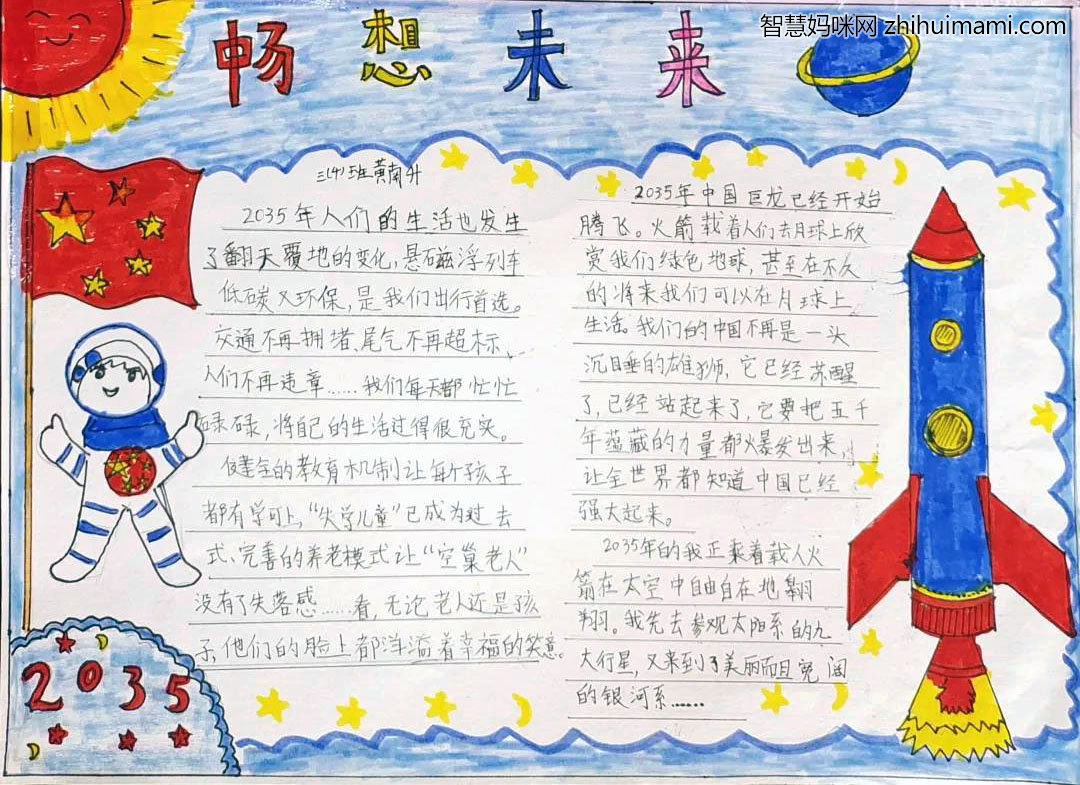 智慧妈咪网 zhihuimami.com
畅想未来
三(4)班黄南升
2035年人们的生活也发生
了翻天覆地的变化,悬磁浮列车
低碳又环保,是我们出行首选。
交通不再拥堵、尾气不再超标、
人们不再违章……我们每天都忙忙
碌碌,将自己的生活过得很充实。
健全的教育机制让每个孩子
都有学可上,“失学儿童”已成为过去
式、完善的养老模式让“空巢老人”
没有了失落感……看,无论老人还是孩
子,他们的脸上都洋溢着幸福的笑意。
2035年中国巨龙已经开始
腾飞。火箭载着人们去月球上欣
赏我们绿色地球,甚至在不久
的将来我们可以在月球上
生活。我们的中国不再是一头
沉睡的雄狮,它已经苏醒
了,已经站起来了,它要把五千
年蕴藏的力量都爆发出来,
让全世界都知道中国已经
强大起来。
2035年的我正乘着载人火
箭在太空中自由自在地翱
翔。我先去参观太阳系的九
大行星,又来到了美丽而且宽阔
的银河系……
2035